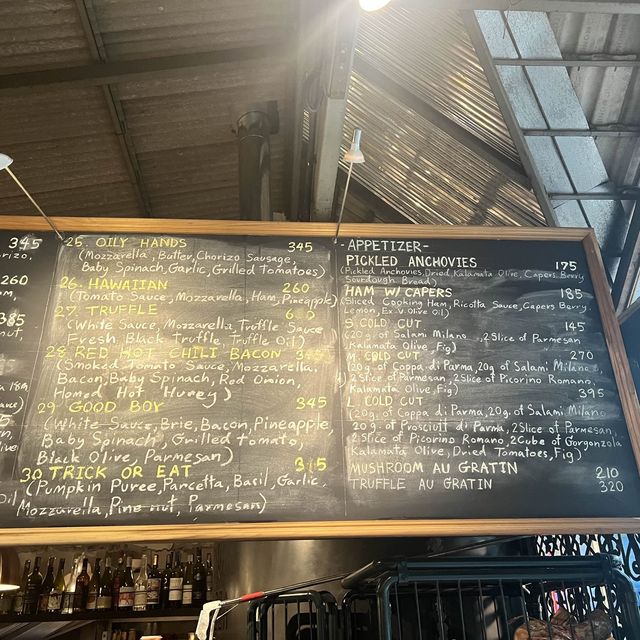 345
260
385
25. OILY HANDS 345
(Mozzarella, Butter, Chorizo Sausage,
Baby Spinach, Garlic, Grilled Tomatoes)
26. HAWAIIAN 260
(Tomato Sauce, Mozzarella, Ham, Pineapple)
27. TRUFFLE
(White Sauce, Mozzarella, Truffle Sauce
Fresh Black Truffle, Truffle Oil)
28. RED HOT CHILI BACON
(Smoked Tomato Sauce, Mozzarella,
Bacon, Baby Spinach, Red Onion,
Homed Hot Huney)
29 GOOD BOY 345
(White Sauce, Brie, Bacon, Pineapple,
Baby Spinach, Grilled Tomato,
Black Olive, Parmesan)
30 TRICK OR EAT 315
(Pumpkin Puree, Pancetta, Basil, Garlic,
Mozzarella, Pine nut, Parmesan)
-APPETIZER-
PICKLED ANCHOVIES 175
(Pickled Anchovies, Dried, Kalamata Olive, Capers Berry
Sourdough Bread)
HAM W/CAPERS 185
(Sliced Cooking Ham, Ricotta Sauce, Capers Berry,
Lemon, Ex.V.Olive Oil)
S.COLD CUT 145
(20g. of Salami Milano, 2Slice of Parmesan
Kalamata Olive, Fig)
M. COLD CUT 270
(20g. of Coppa di Parma, 20g. of Salami Milano,
2Slice of Parmesan, 2Slice of Picorino Romano,
Kalamata Olive, Fig)
COLD CUT 395
(20g. of Coppa di Parma, 20g. of Salami Milano
20g. of Prosciutt di Parma, 2Slice of Parmesan,
2Slice of Picorino Romano, 2Cube of Gorgonzola
Kalamata Olive, Dried Tomatoes, Fig)
MUSHROOM AU GRATIN 210
TRUFFLE AU GRATIN 320